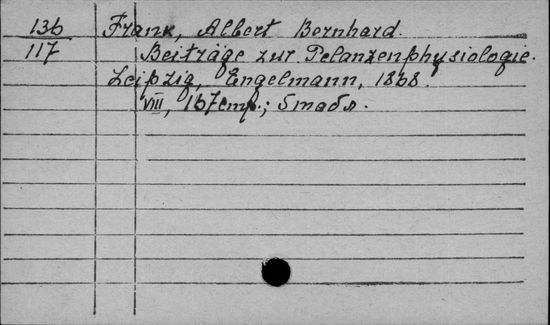 136 Frank, Albert Bernhard.
117 Beiträge zur Pelanzenphysiologie.
Leipzig, Engelmann, 1868.
VIII, 167 cmp.; 5 madd.